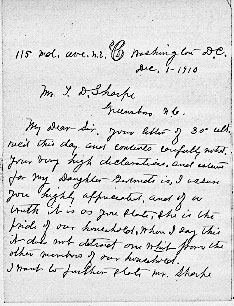 115 Md. ave. N.E. Washington D.C.
Dec. 1-1910
Mr. T. D. Sharpe
Greensboro N.C.
My Dear Sir. Your letter of 30th ult.
rec'd this day and contents carefully noted.
Your very high declarations, and esteem
for my Daughter is, I assure
you highly appreciated, and of a
truth it is as you state, she is the
pride of our household, When I say this
it does not detract one whit from the
other members of our household.
I want to further state Mr. Sharpe